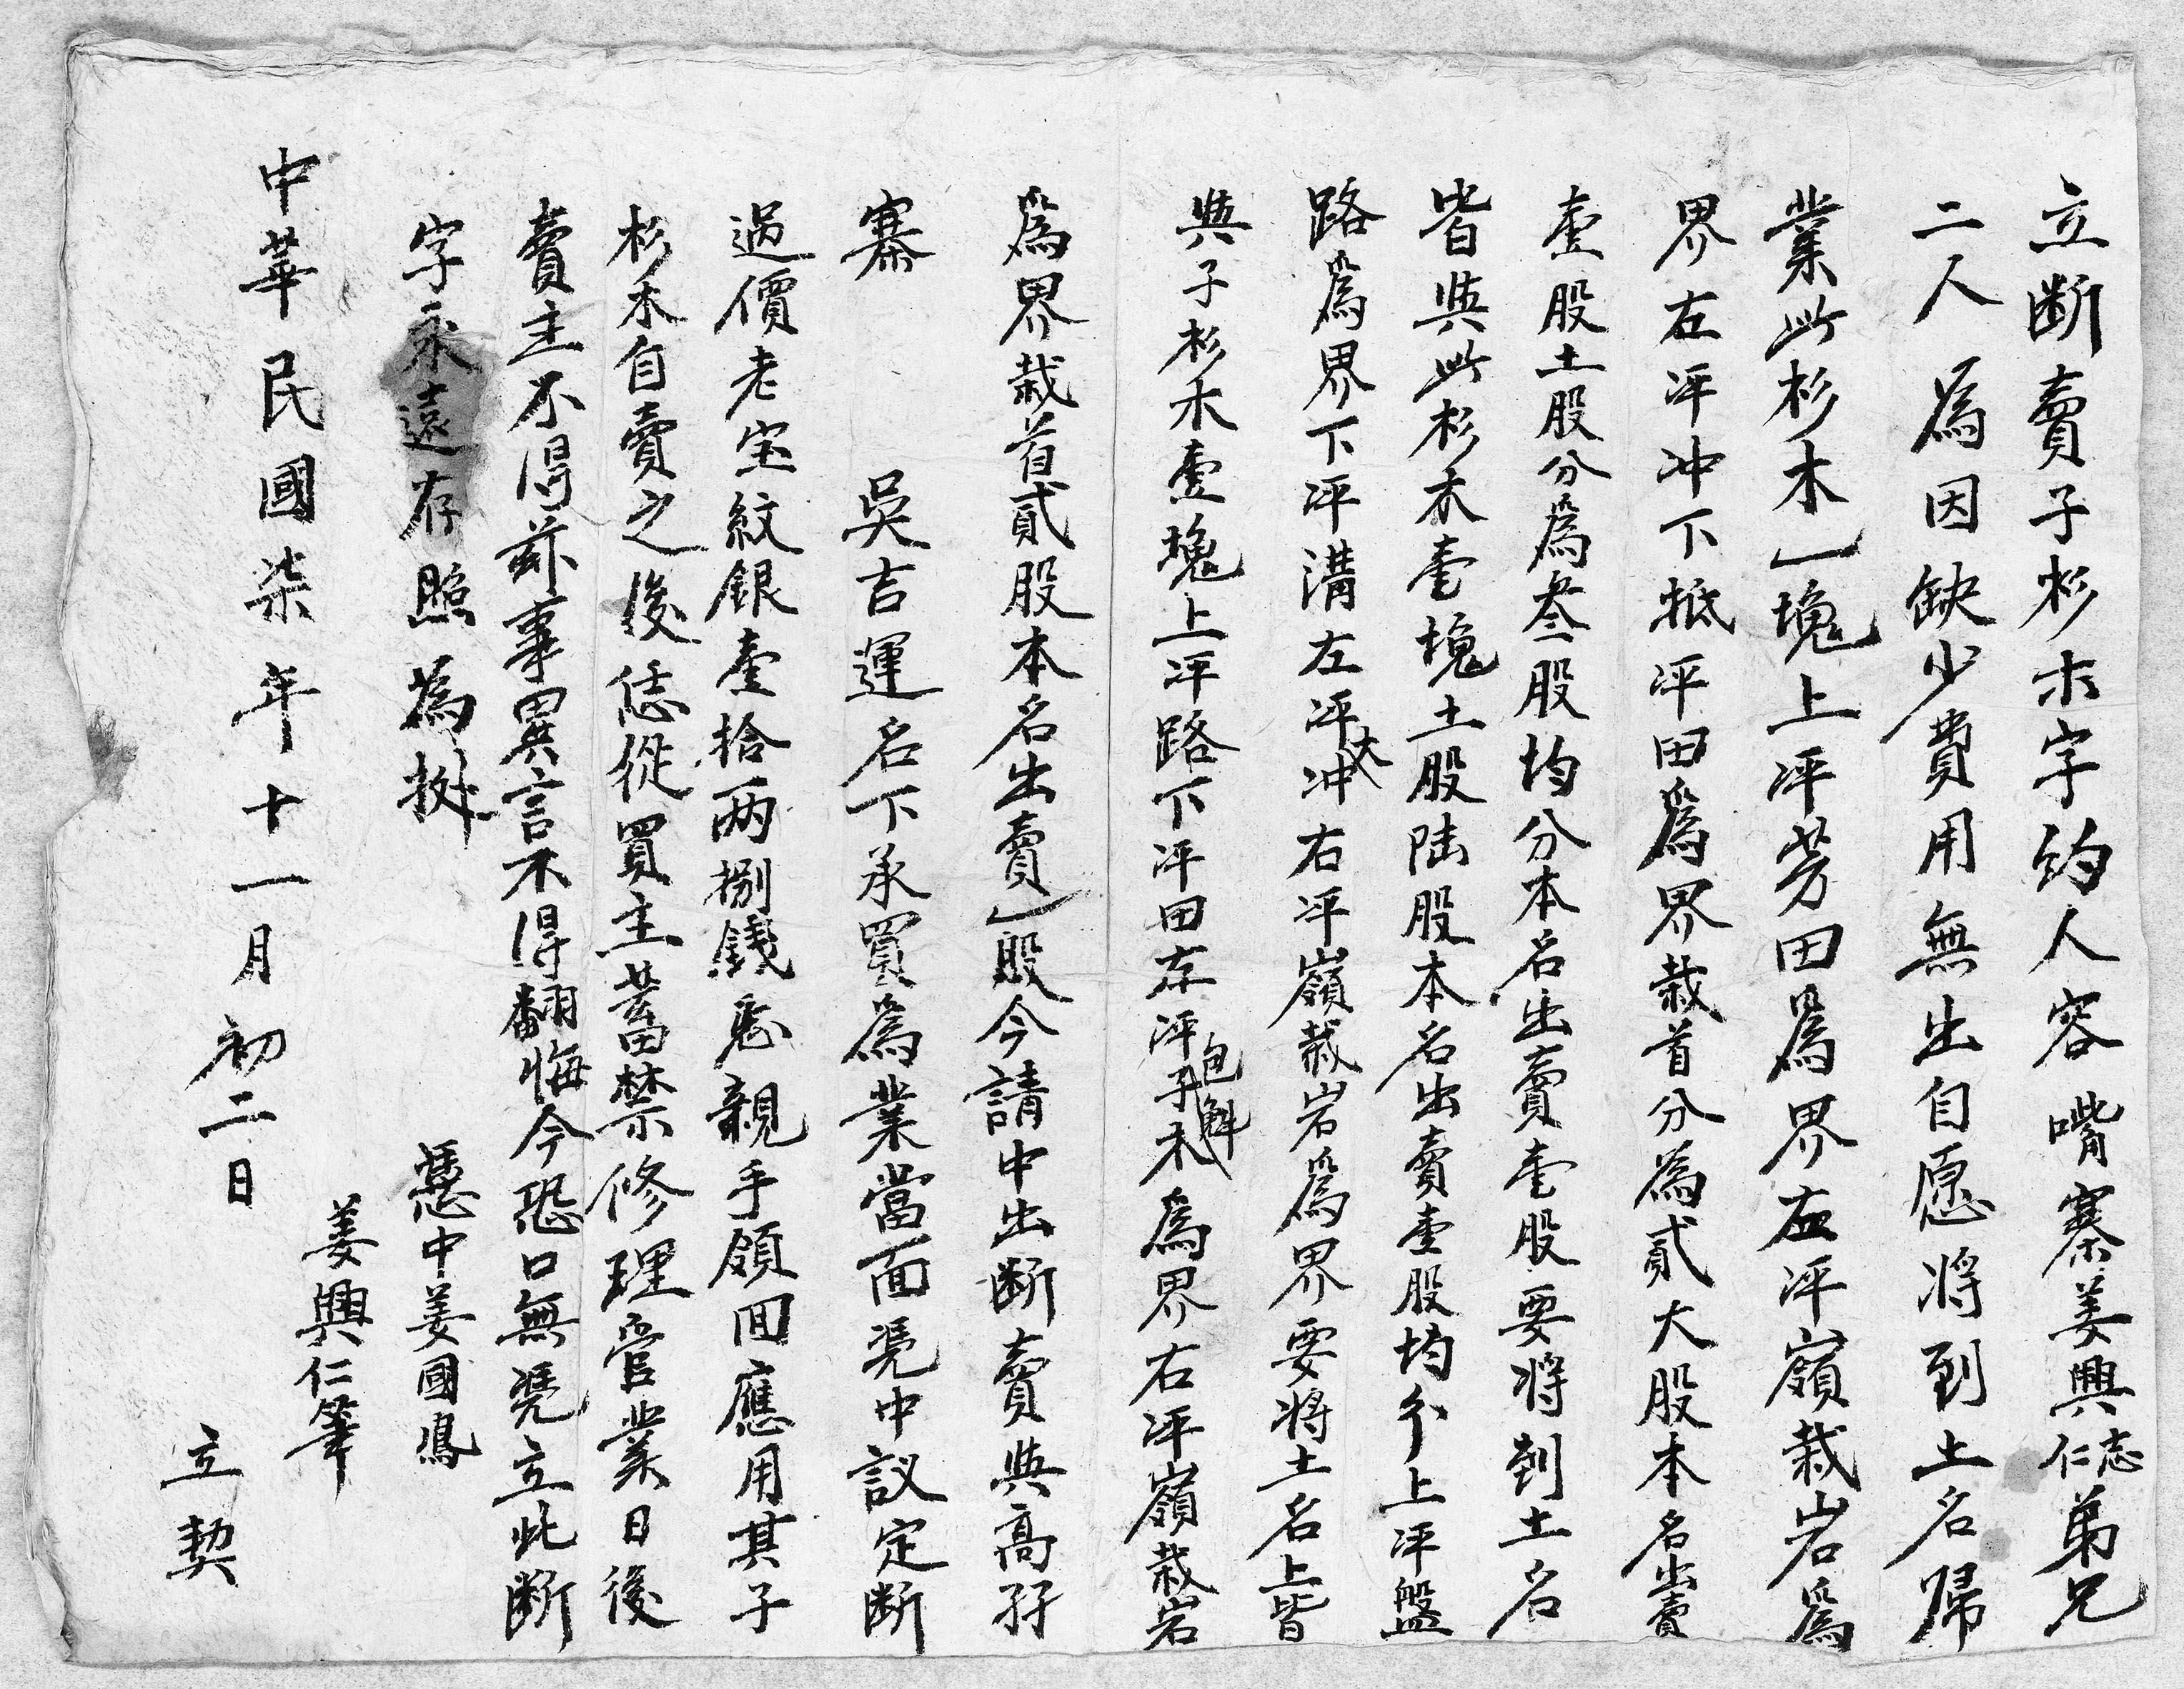 立断賣子杉木字約人容嘴寨姜興志仁弟兄
二人為因缺少費用無出自愿将到土名歸
業此杉木一塊上坪芳田為界左坪嶺栽岩為
界右坪冲下抵坪田為界栽首分為貳大股本名出賣
壹股土股分為叁股均分本名出賣壹股要将到土名
皆與此杉木壹塊土股陆股本名出賣壹股均分上坪盤
路為界下坪溝左坪大冲右坪嶺栽岩為界要将土名上皆
與子杉木壹塊上坪路下坪田左坪包斜子木為界右坪嶺栽岩
為界栽首貳股本名出賣一股今請中出断賣與高孖
寨 吳吉運名下承買為業當面凴中議定断
過價老宝紋銀壹拾两捌錢整親手領囬應用其子
杉木自賣之後恁從買主蓄禁修理管業日後
賣主不得異言不得翻悔今恐口無凴立此断
字永遠存照為挻
憑中姜國鳳
姜興仁筆
中華民國柒年十一月初二日
立契